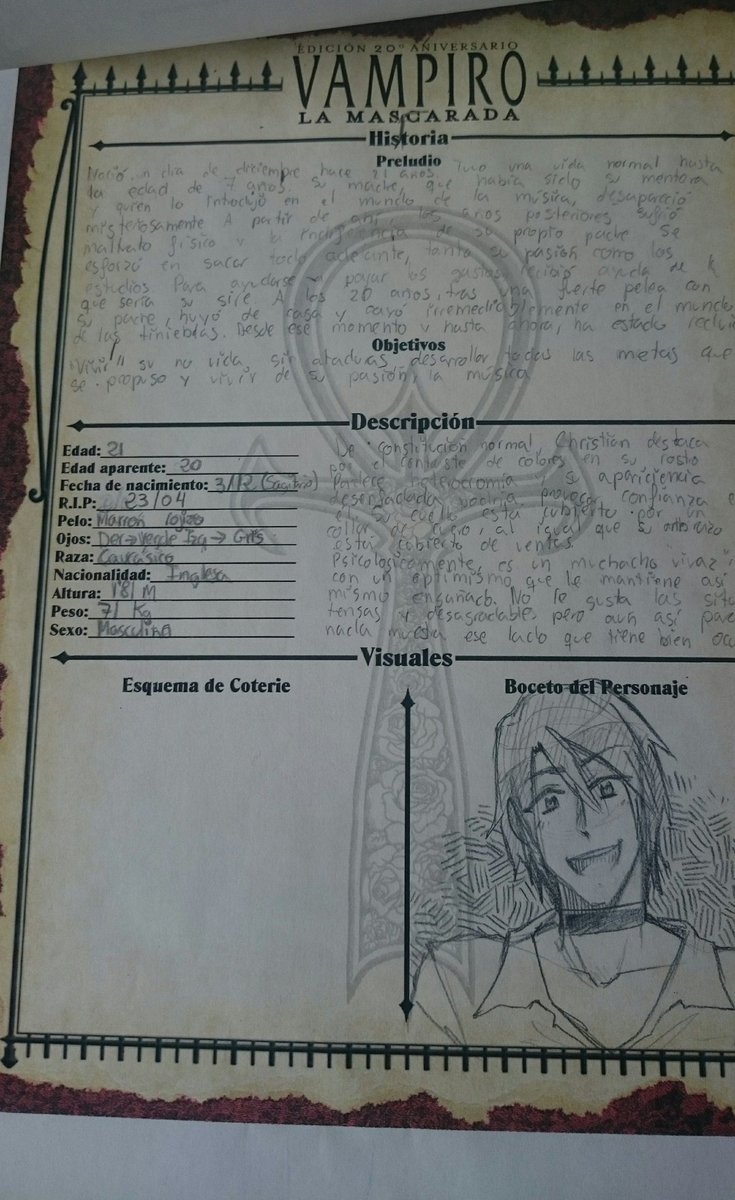 EDICIÓN 20º ANIVERSARIO
VAMPIRO
LA MASCARADA
Historia
Preludio
Nació un dia de diciembre hace 21 años. Tuvo una vida normal hasta
la edad de 7 años. Su madre, que había sido su mentora
y quien lo introdujo en el mundo de la música, desapareció
misteriosamente. A partir de ahí, los años posteriores sufrió
maltrato físico y la indiferencia de su propio padre. Se
esforzó en sacar todo adelante, tanto su pasión como los
estudios. Para ayudarse a pagar los gastos, recibió ayuda de
que sería su sire. A los 20 años, tras una fuerte pelea con
su padre, huyó de casa y cayó irremediablemente en el mundo
de las tinieblas. Desde ese momento y hasta ahora, ha estado
Objetivos
"Vivir" su no vida sin ataduras, desarrollar todas las metas que
se propuso y vivir de su pasión, la música
Descripción
Edad: 21
Edad aparente: 20
Fecha de nacimiento: 3/12 (Sagitario)
R.I.P: 23/04
Pelo: Marrón rojizo
Ojos: Der→Verde Izq→Gris
Raza: Caucásico
Nacionalidad: Inglesa
Altura: 1'81 M
Peso: 71 Kg
Sexo: Masculino
De constitución normal, Christian destaca
por el contraste de colores en su rostro
Padece heterocromía y su apariciencia
desenfadada podría provocar confianza e
el. Su cuello está cubierto por un
collar de cuero, al igual que su antebrazo
está cubierto de vendas.
Psicologicamente, es un muchacho vivaz
con un optimismo que le mantiene así
mismo engañado. No le gusta las
tensas y desagradables pero aun así
nada muestra ese lado que tiene bien
Visuales
Esquema de Coterie
Boceto del Personaje